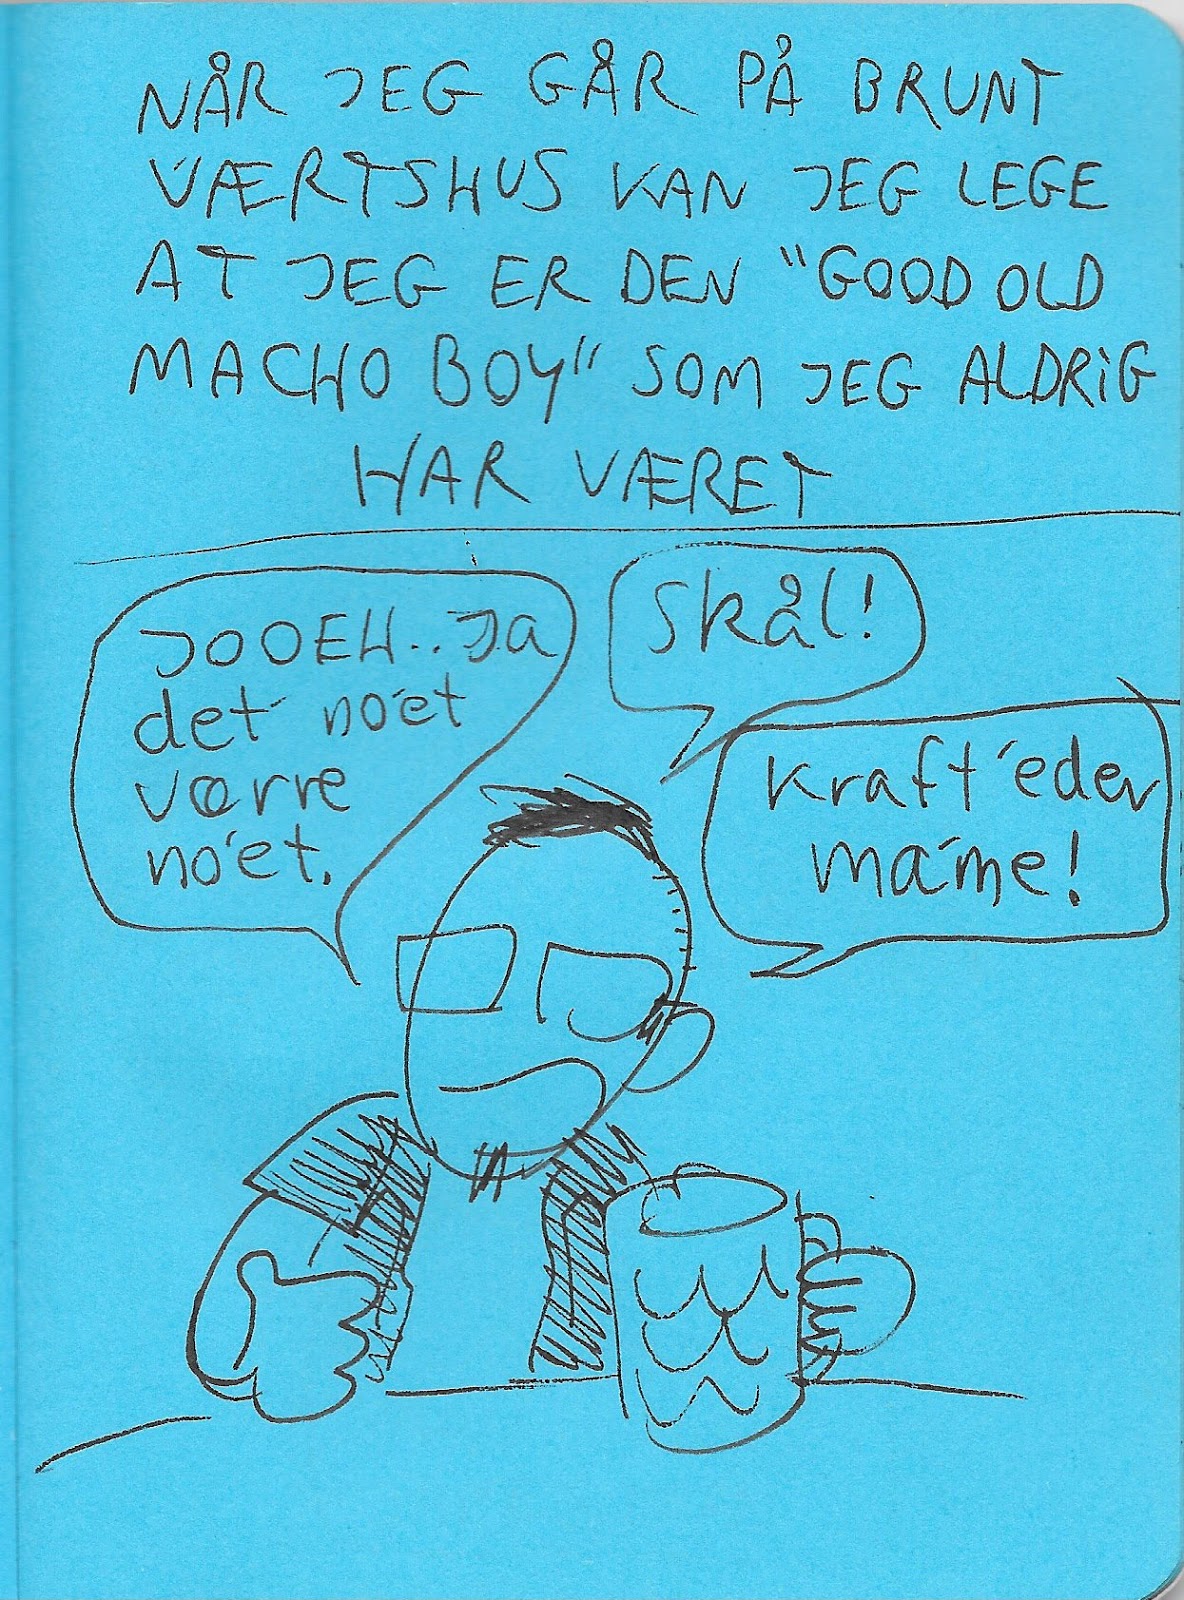 NÅR JEG GÅR PÅ BRUNT
VÆRTSHUS KAN JEG LEGE
AT JEG ER DEN "GOOD OLD
MACHO BOY" SOM JEG ALDRIG
HAR VÆRET
JOOEH.. JA
det no'et
værre
no'et.
Skål!
Kraft'eder
ma'me!